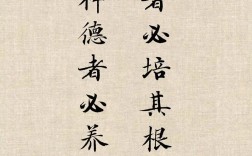 者必培其根
种德者必养